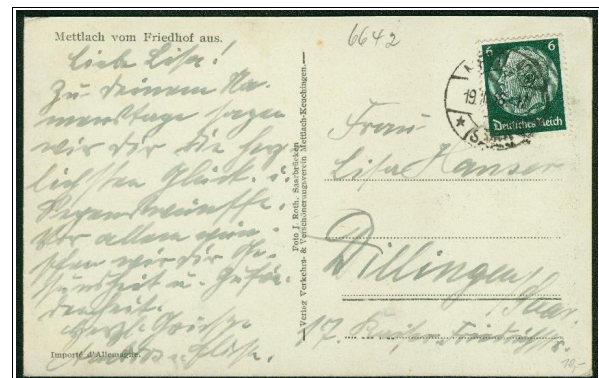 Mettlach vom Friedhof aus.
Liebe Lisa!
Zu Deinem Na-
menstage sagen
wir Dir die herz-
lichsten Glück- u.
Segenswünsche.
Vor allem wün-
schen wir Dir Ge-
sundheit u. Zufrie-
denheit.
Herzl. Grüße
Importé d'Allemagne.
Foto J. Roth, Saarbrücken
Verlag Verkehrs- & Verschönerungsverein Mettlach-Keuchingen.
6642
6 6
Deutsches Reich
19.
Frau
Lisa Hanser
Dillingen/Saar
17.
10,-